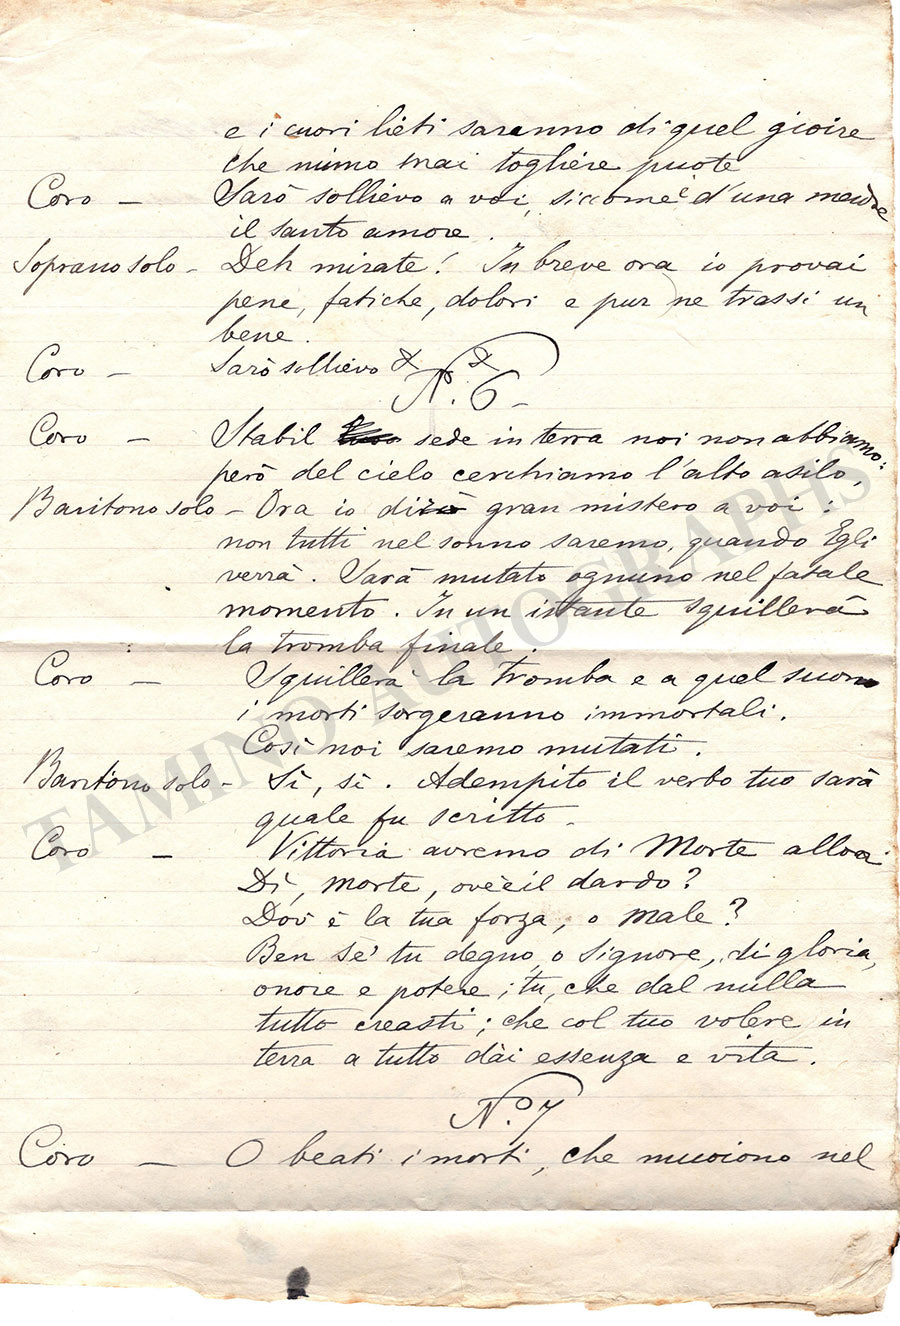 e i cuori lieti saranno di quel gioire
che niuno mai togliere puote
Coro — Sarò sollievo a voi, siccome è d'una madre
il santo amore.
Soprano solo - Deh mirate! In breve ora io provai
pene, fatiche, dolori e pur ne trassi un
bene.
Coro — Sarò sollievo & &
N.o 6 -
Coro — Stabil sede in terra noi non abbiamo:
però del cielo cerchiamo l'alto asilo.
Baritono solo - Ora io dirò gran mistero a voi:
non tutti nel sonno saremo, quando Egli
verrà. Sarà mutato ognuno nel fatale
momento. In un istante squillerà
la tromba finale.
Coro — Squillerà la tromba e a quel suono
i morti sorgeranno immortali.
Così noi saremo mutati.
Baritono solo - Sì, sì. Adempito il verbo tuo sarà
quale fu scritto -
Coro — Vittoria avremo di Morte allora.
Dì, morte, ov'è il dardo?
Dov'è la tua forza, o male?
Ben sè' tu degno, o Signore, di gloria,
onore e potere; tu, che dal nulla
tutto creasti; che col tuo volere in
terra a tutto dài essenza e vita.
N.o 7
Coro — O beati i morti, che muoiono nel
TAMINO AUTOGRAPHS